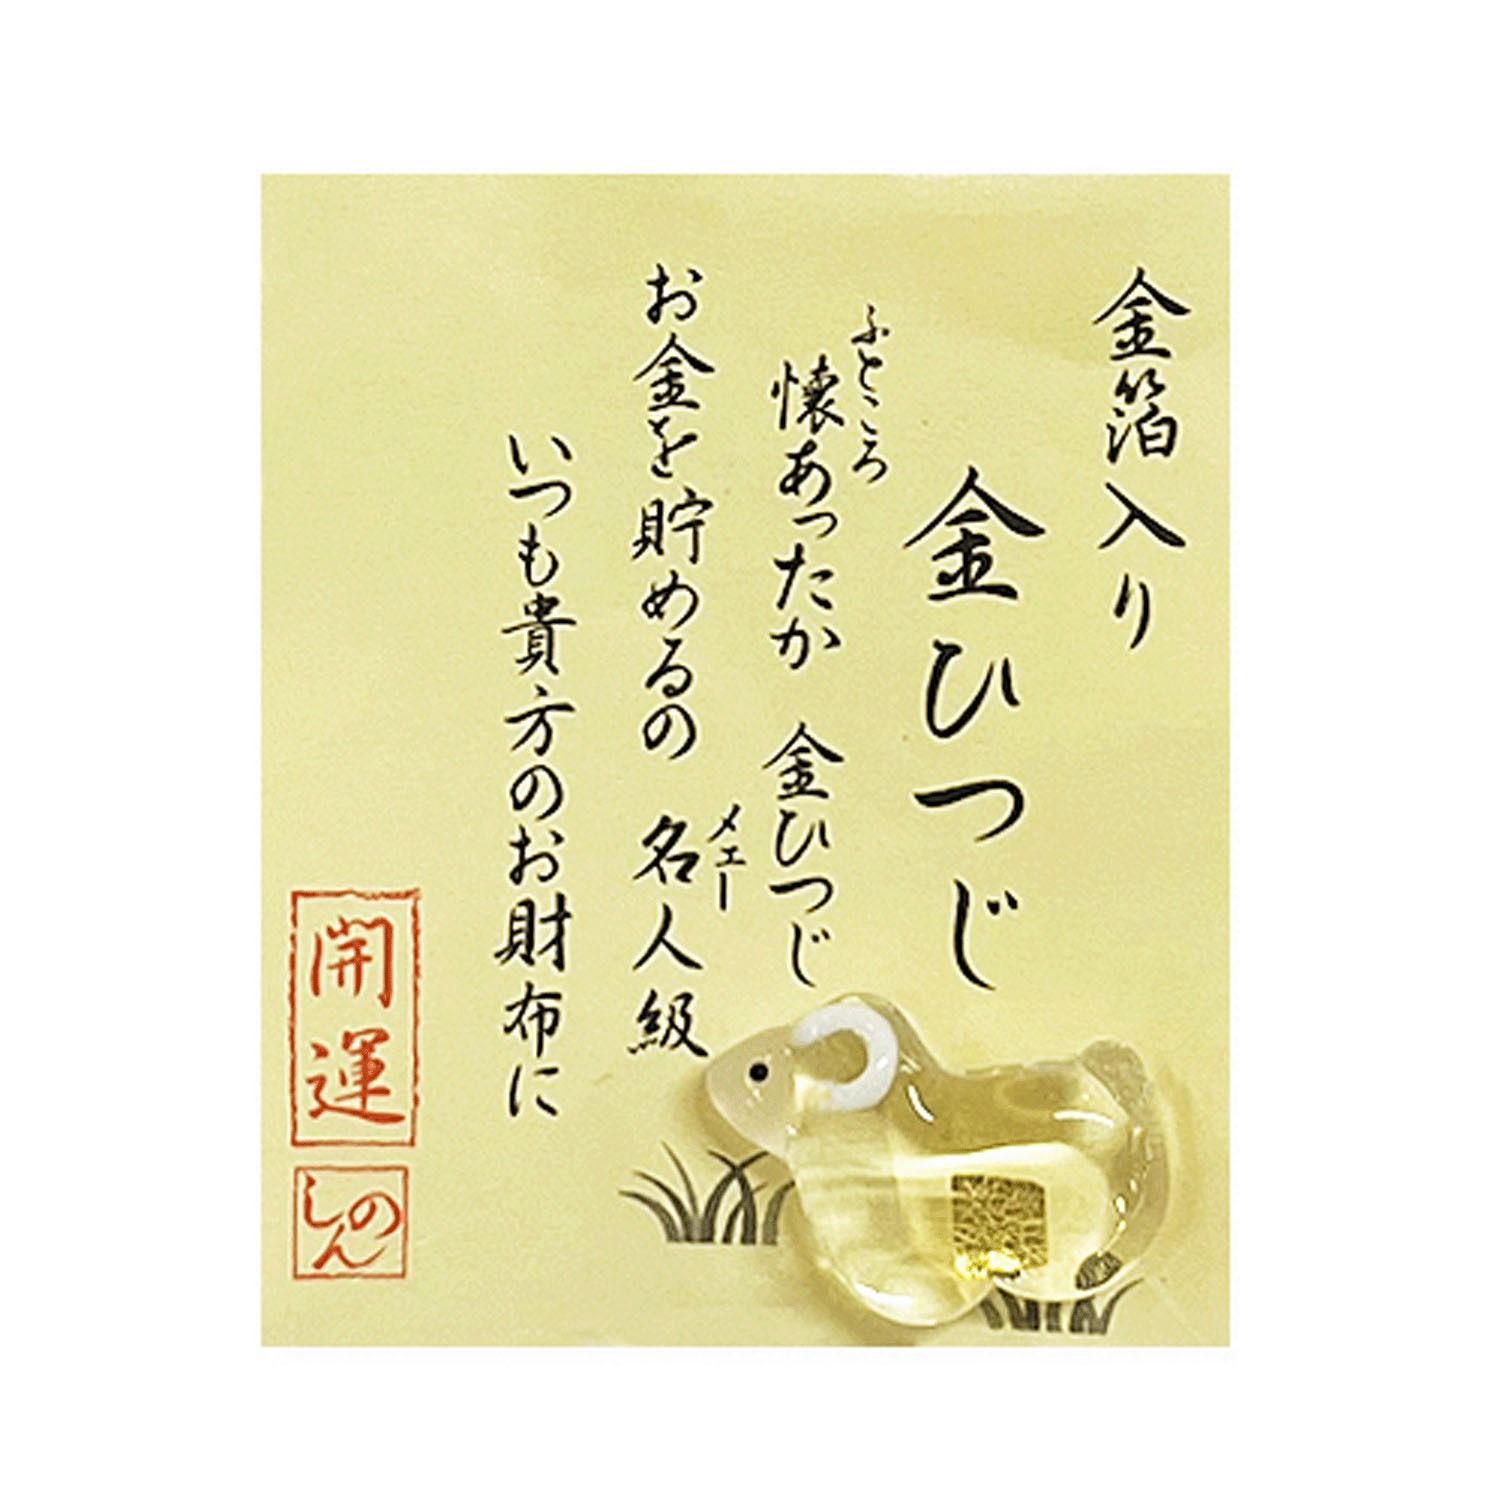 金箔入り
金ひつじ
ふところ
懐あったか 金ひつじ
メェー
お金を貯めるの 名人級
いつも貴方のお財布に
開運
しんの